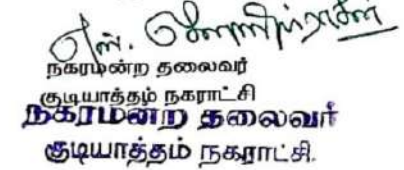 எஸ். சௌந்தரராசன்
நகரமன்ற தலைவர்
குடியாத்தம் நகராட்சி
நகரமன்ற தலைவர்
குடியாத்தம் நகராட்சி.